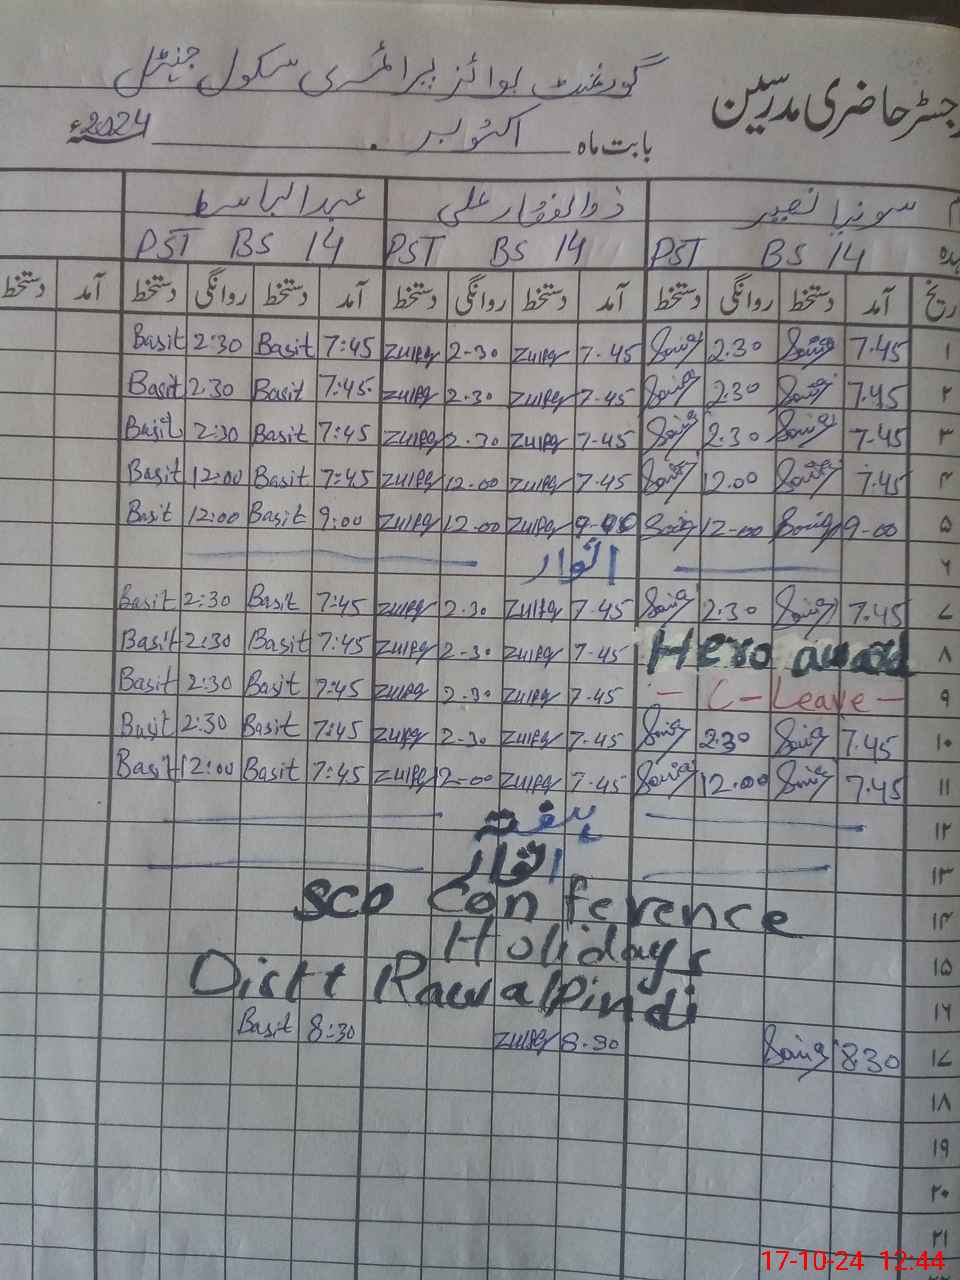 رجسٹر حاضری مدرسین
گورنمنٹ بوائز پرائمری سکول جنٹل
بابت ماہ اکتوبر 2024ء
سونیا نصیر ذوالفقار علی عبدالباسط
PST BS 14 PST BS 14 PST BS 14
آمد دستخط روانگی دستخط آمد دستخط روانگی دستخط آمد دستخط روانگی دستخط آمد دستخط
۱ 7.45 Sonia 2.30 Sonia 7.45 Zulfiq 2.30 Zulfiq 7:45 Basit 2:30 Basit
۲ 7.45 Sonia 2.30 Sonia 7.45 Zulfiq 2.30 Zulfiq 7:45 Basit 2.30 Basit
۳ 7.45 Sonia 2.30 Sonia 7.45 Zulfiq 2.30 Zulfiq 7:45 Basit 2:30 Basit
۴ 7.45 Sonia 12.00 Sonia 7.45 Zulfiq 12.00 Zulfiq 7:45 Basit 12:00 Basit
۵ 9-00 Sonia 12-00 Sonia 9-00 Zulfiq 12.00 Zulfiq 9:00 Basit 12:00 Basit
۶ اتوار
۷ 7.45 Sonia 2.30 Sonia 7.45 Zulfiq 2.30 Zulfiq 7:45 Basit 2:30 Basit
۸ Hero award 7.45 Zulfiq 2-30 Zulfiq 7:45 Basit 2:30 Basit
۹ - C-Leave - 7.45 Zulfiq 2.30 Zulfiq 7:45 Basit 2:30 Basit
۱۰ 7.45 Sonia 2.30 Sonia 7.45 Zulfiq 2-30 Zulfiq 7:45 Basit 2:30 Basit
۱۱ 7.45 Sonia 12.00 Sonia 7.45 Zulfiq 12-00 Zulfiq 7:45 Basit 12:00 Basit
۱۲ ہفتہ
۱۳ اتوار
۱۴ SCO Conference
۱۵ Holidays
۱۶ Distt Rawalpindi
۱۷ 8.30 Sonia 8.30 Zulfiq 8:30 Basit
۱۸
۱۹
۲۰
۲۱
17-10-24 12:44